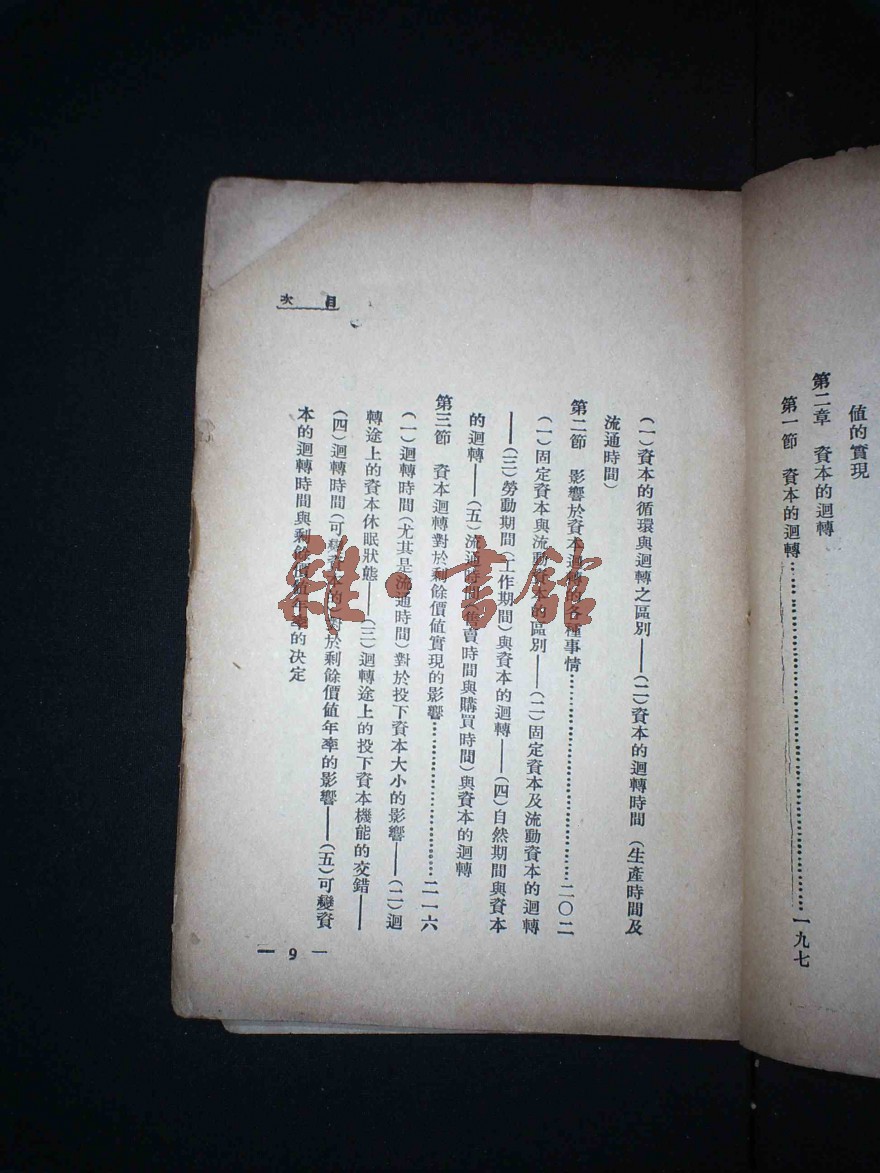 值的實現
第二章 資本的迴轉
第一節 資本的迴轉……………………一九七
目次
(一)資本的循環與迴轉之區別——(二)資本的迴轉時間(生產時間及
流通時間)
第二節 影響於資本迴轉的各種事情……………………二〇二
(一)固定資本與流動資本的區別——(二)固定資本及流動資本的迴轉
——(三)勞動期間(工作期間)與資本的迴轉——(四)自然期間與資本
的迴轉——(五)流通時間(售賣時間與購買時間)與資本的迴轉
第三節 資本迴轉對於剩餘價值實現的影響……………………二一六
(一)迴轉時間(尤其是流通時間)對於投下資本大小的影響——(二)迴
轉途上的資本休眠狀態——(三)迴轉途上的投下資本機能的交錯——
(四)迴轉時間(可變資本的)對於剩餘價值年率的影響——(五)可變資
本的迴轉時間與剩餘價值年率的決定
— 9 —
雜·書館